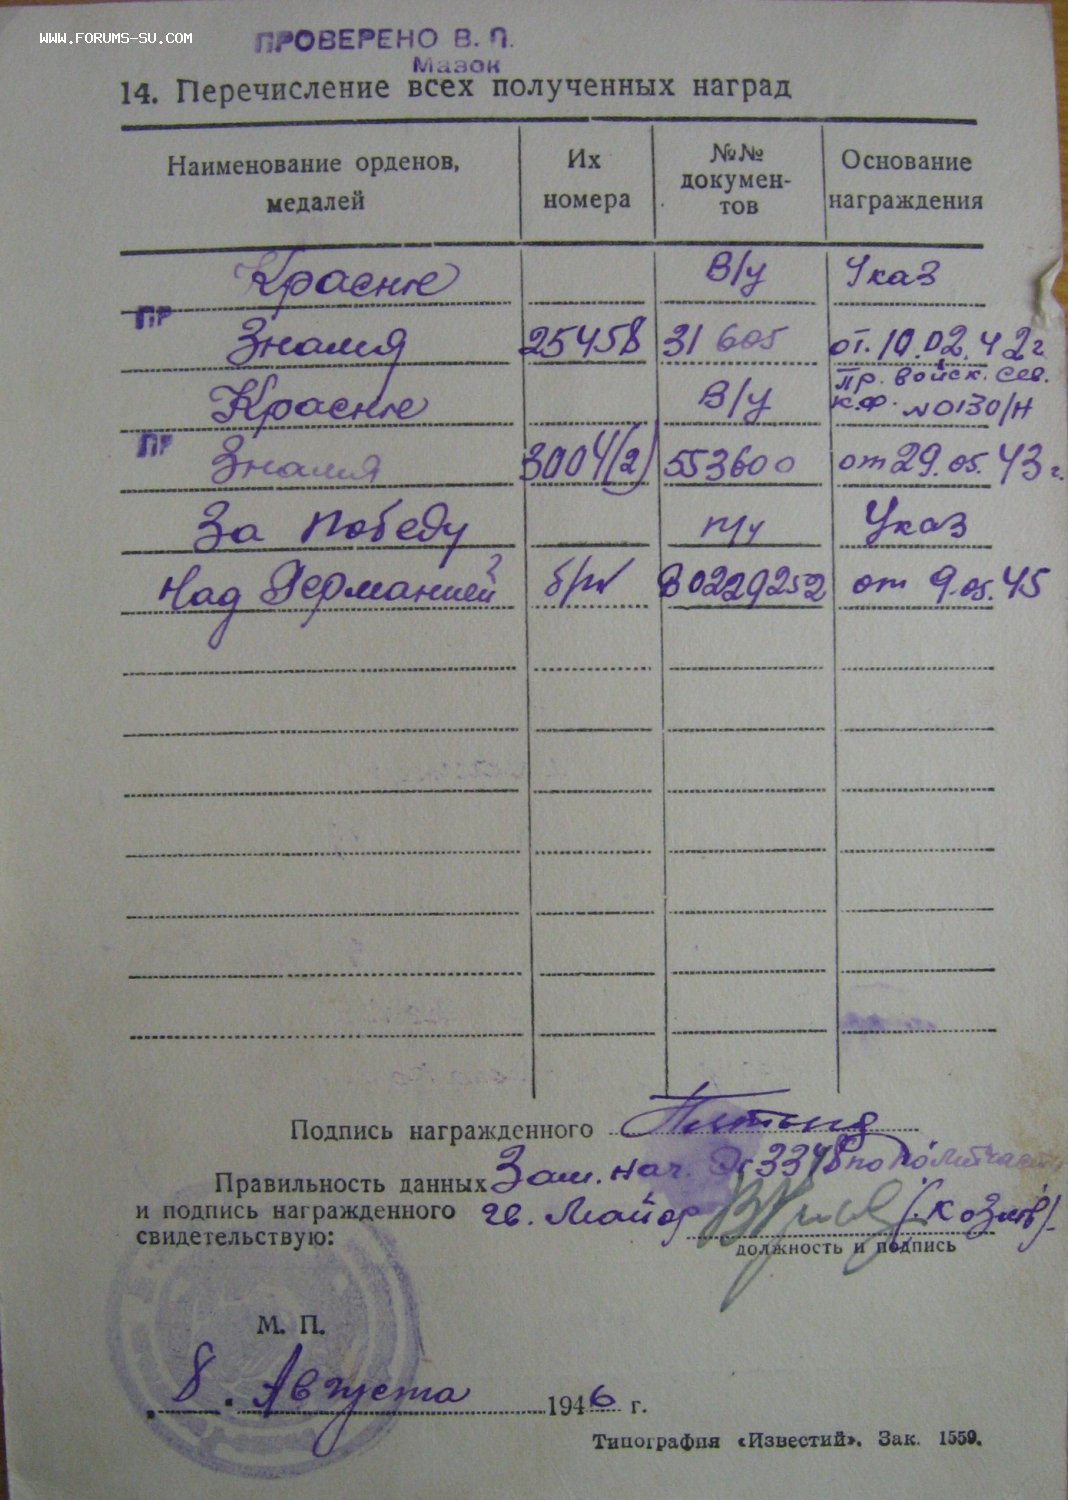 WWW.FORUMS-SU.COM
ПРОВЕРЕНО В. П.
Мазок
14. Перечисление всех полученных наград
Наименование орденов, медалей
Их номера
№№ докумен-
тов
Основание награждения
Красное В/у Указ
ПР
Знамя 25458 31605 от. 10.02.42г
Пр. Войск. Сев.
Красное В/у К.Ф. N0130/Н
ПР
Знамя 3004(2) 553600 от 29.05.43г.
За Победу п/у Указ
Над Германией б/н 0229252 от 9.05.45
Подпись награжденного
Зам. нач. 3348 по политчасти
Правильность данных
и подпись награжденного гв. Майор (Козлов).
свидетельствую:
должность и подпись
М. П.
8. Августа 1946 г.
Типография «Известий». Зак. 1559.